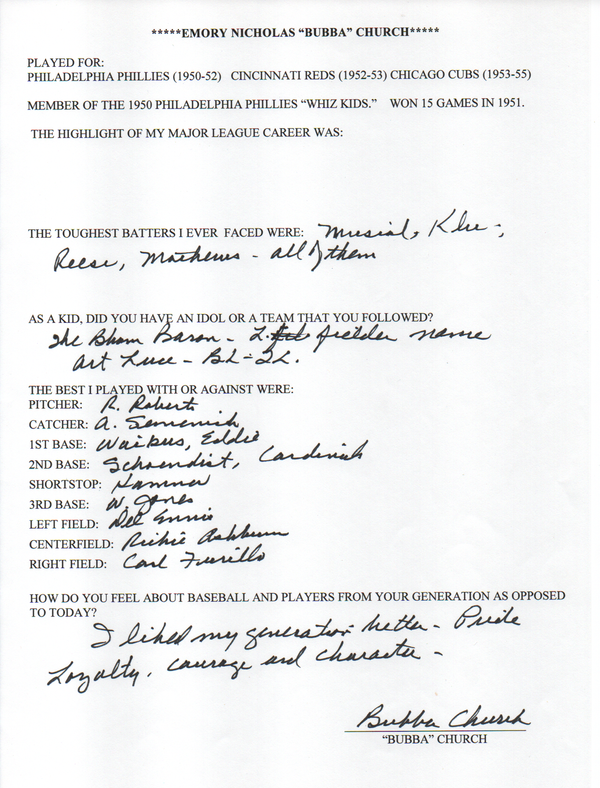 *****EMORY NICHOLAS “BUBBA” CHURCH*****
PLAYED FOR:
PHILADELPHIA PHILLIES (1950-52) CINCINNATI REDS (1952-53) CHICAGO CUBS (1953-55)
MEMBER OF THE 1950 PHILADELPHIA PHILLIES “WHIZ KIDS.” WON 15 GAMES IN 1951.
THE HIGHLIGHT OF MY MAJOR LEAGUE CAREER WAS:
THE TOUGHEST BATTERS I EVER FACED WERE: Musial, Klu -,
Reese, Mathews - all of them
AS A KID, DID YOU HAVE AN IDOL OR A TEAM THAT YOU FOLLOWED?
The Bham Baron - L. fielder name
Art Luce - BL-TL.
THE BEST I PLAYED WITH OR AGAINST WERE:
PITCHER: R. Roberts
CATCHER: A. Semenick
1ST BASE: Waitkus, Eddie
2ND BASE: Schoendist, Cardinals
SHORTSTOP: Hamner
3RD BASE: W. Jones
LEFT FIELD: Del Ennis
CENTERFIELD: Richie Ashburn
RIGHT FIELD: Carl Furillo
HOW DO YOU FEEL ABOUT BASEBALL AND PLAYERS FROM YOUR GENERATION AS OPPOSED
TO TODAY?
I liked my generation better - Pride
Loyalty, courage and character -
Bubba Church
“BUBBA” CHURCH